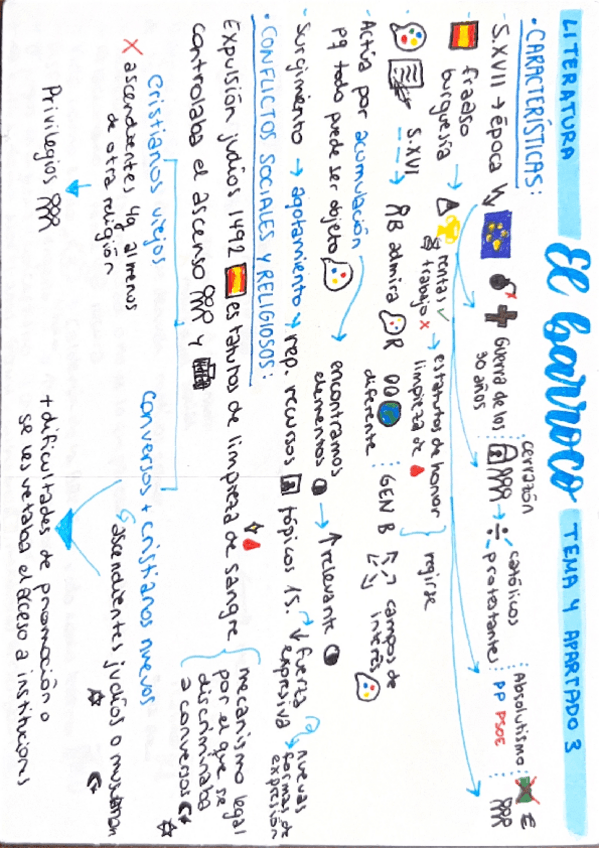 LITERATURA
El barroco
TEMA 4 APARTADO 3
• CARACTERÍSTICAS:
- S.XVII → época
Guerra de los
30 años
cerrazón
católicos
protestantes
Absolutismo
PP PSOE
€
fracaso
burguesía
rentas ✓
trabajo X
→ estatutos de honor
limpieza de
regirse
S.XVI
B admira R
diferente
GEN B
campos de
interés
- Actúa por acumulación
pq todo puede ser objeto
encontramos
elementos
→ ↑ relevante
- Surgimiento → agotamiento → rep. recursos tópicos 1S. ↓ fuerza
expresiva
nuevas
formas de
expresión
• CONFLICTOS SOCIALES Y RELIGIOSOS:
Expulsión judíos 1492 estatutos de limpieza de sangre
controlaba el ascenso y
mecanismo legal
por el que se
discriminaba
a conversos
cristianos viejos
X ascendientes 4g almenos
de otra religión
Privilegios
conversos + cristianos nuevos
ascendientes judíos o musulman
+ dificultades de promoción o
se les vetaba el acceso a instituciones